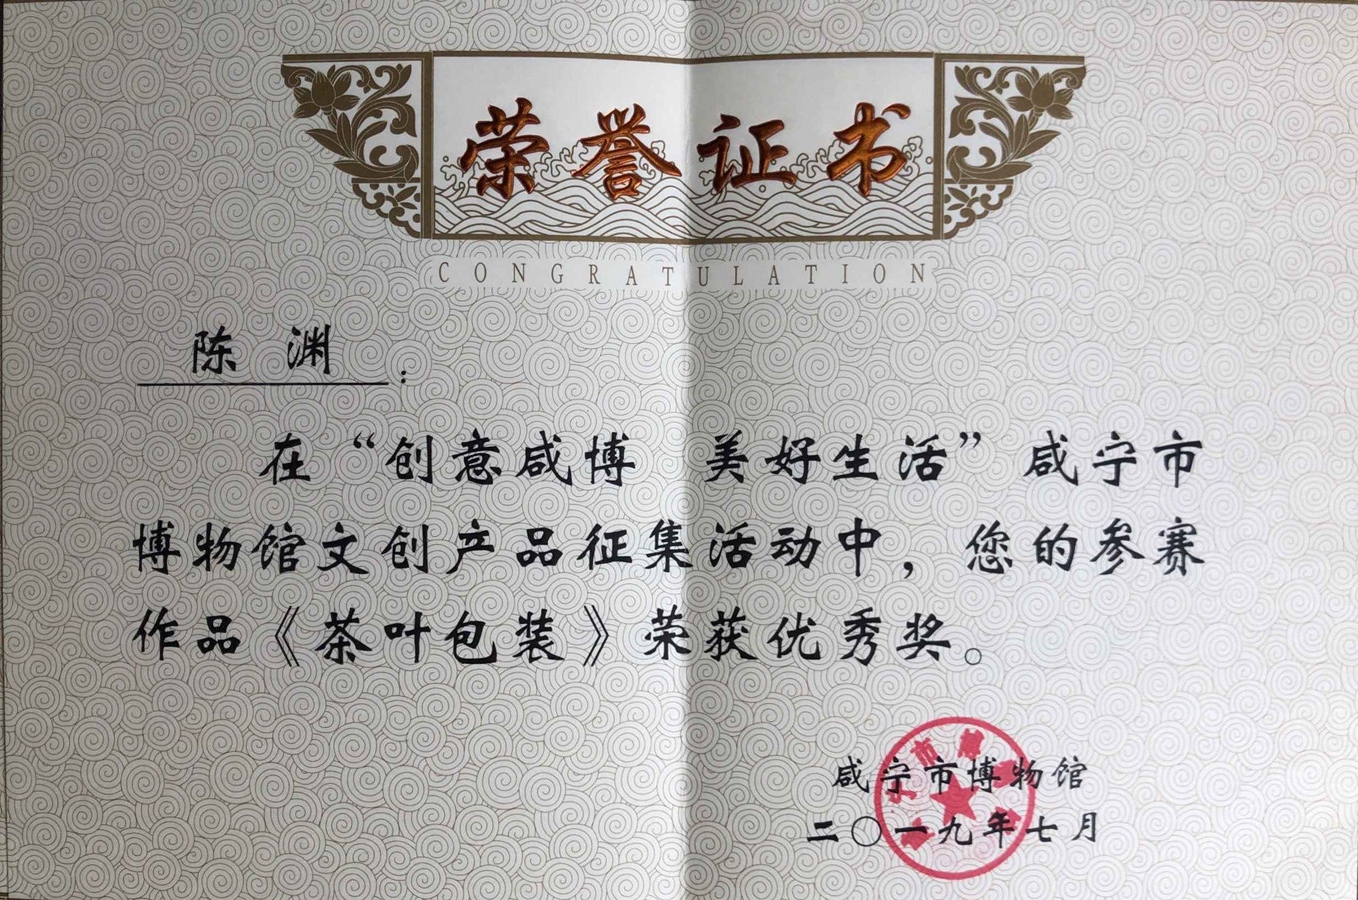 荣誉证书
CONGRATULATION
陈 渊：
在“创意咸博 美好生活”咸宁市
博物馆文创产品征集活动中，您的参赛
作品《茶叶包装》荣获优秀奖。
咸宁市博物馆
二〇一九年七月